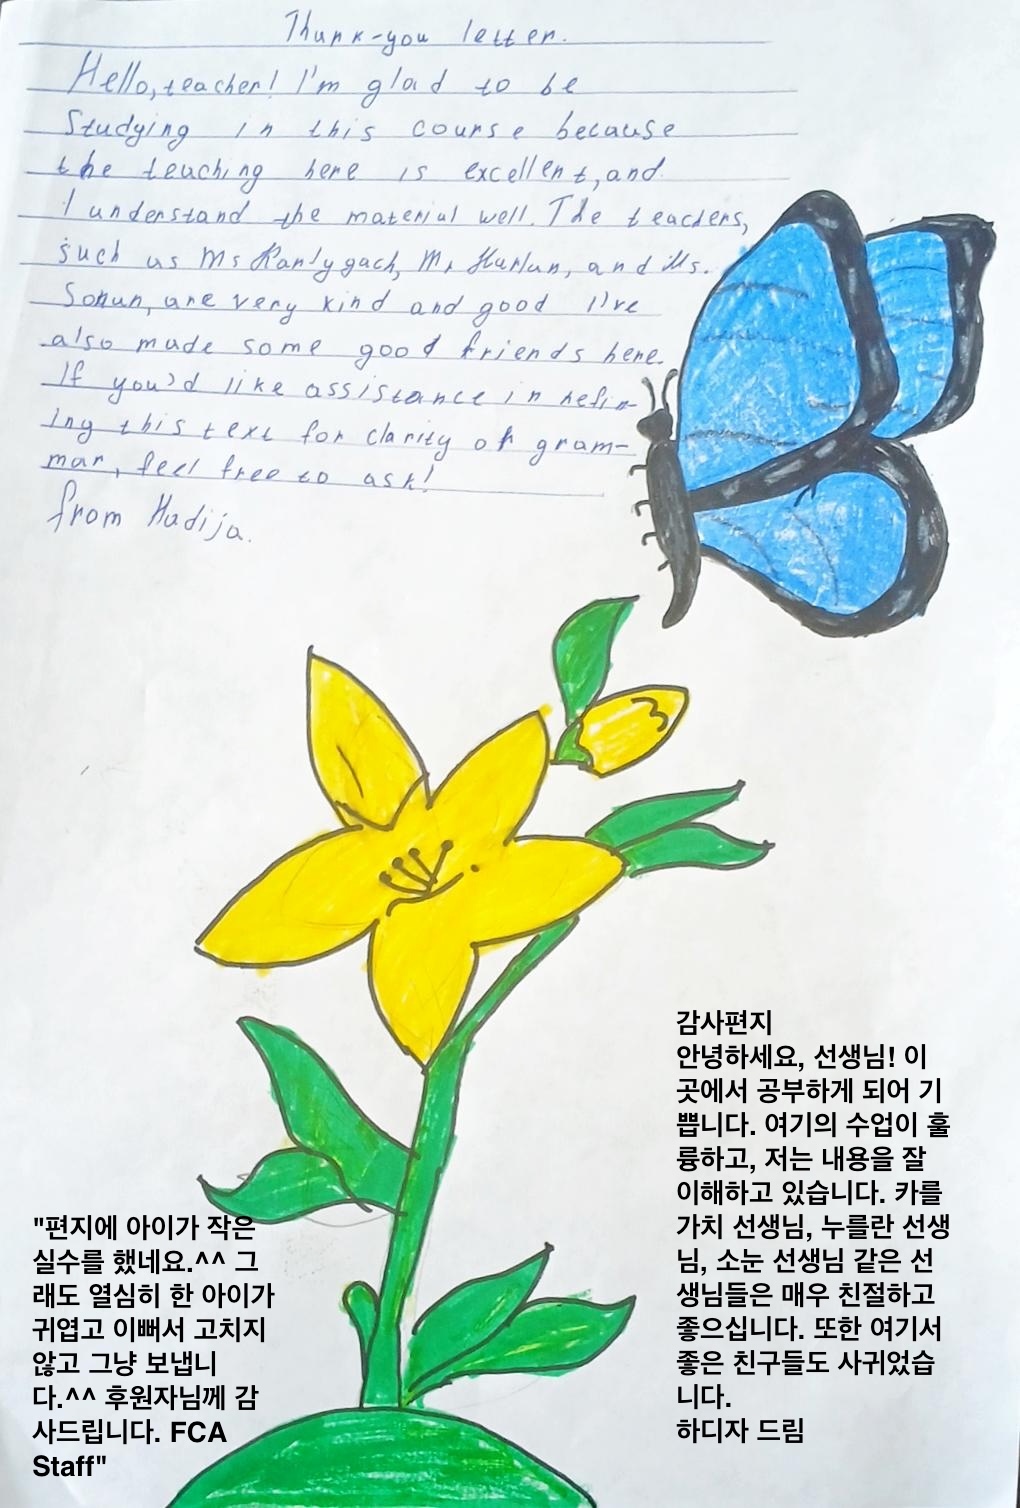 Thank-you letter.
Hello, teacher! I'm glad to be
Studying in this course because
the teaching here is excellent, and
I understand the material well. The teachers,
such as Ms Karlygach, Mr Nurlan, and Ms.
Sonun, are very kind and good I've
also made some good friends here.
If you'd like assistance in refin-
ing this text for clarity or gram-
mar, feel free to ask!
from Hadija.
감사편지
안녕하세요, 선생님! 이
곳에서 공부하게 되어 기
쁩니다. 여기의 수업이 훌
륭하고, 저는 내용을 잘
이해하고 있습니다. 카를
가치 선생님, 누를란 선생
님, 소눈 선생님 같은 선
생님들은 매우 친절하고
좋으십니다. 또한 여기서
좋은 친구들도 사귀었습
니다.
하디자 드림
"편지에 아이가 작은
실수를 했네요.^^ 그
래도 열심히 한 아이가
귀엽고 이뻐서 고치지
않고 그냥 보냅니
다.^^ 후원자님께 감
사드립니다. FCA
Staff"